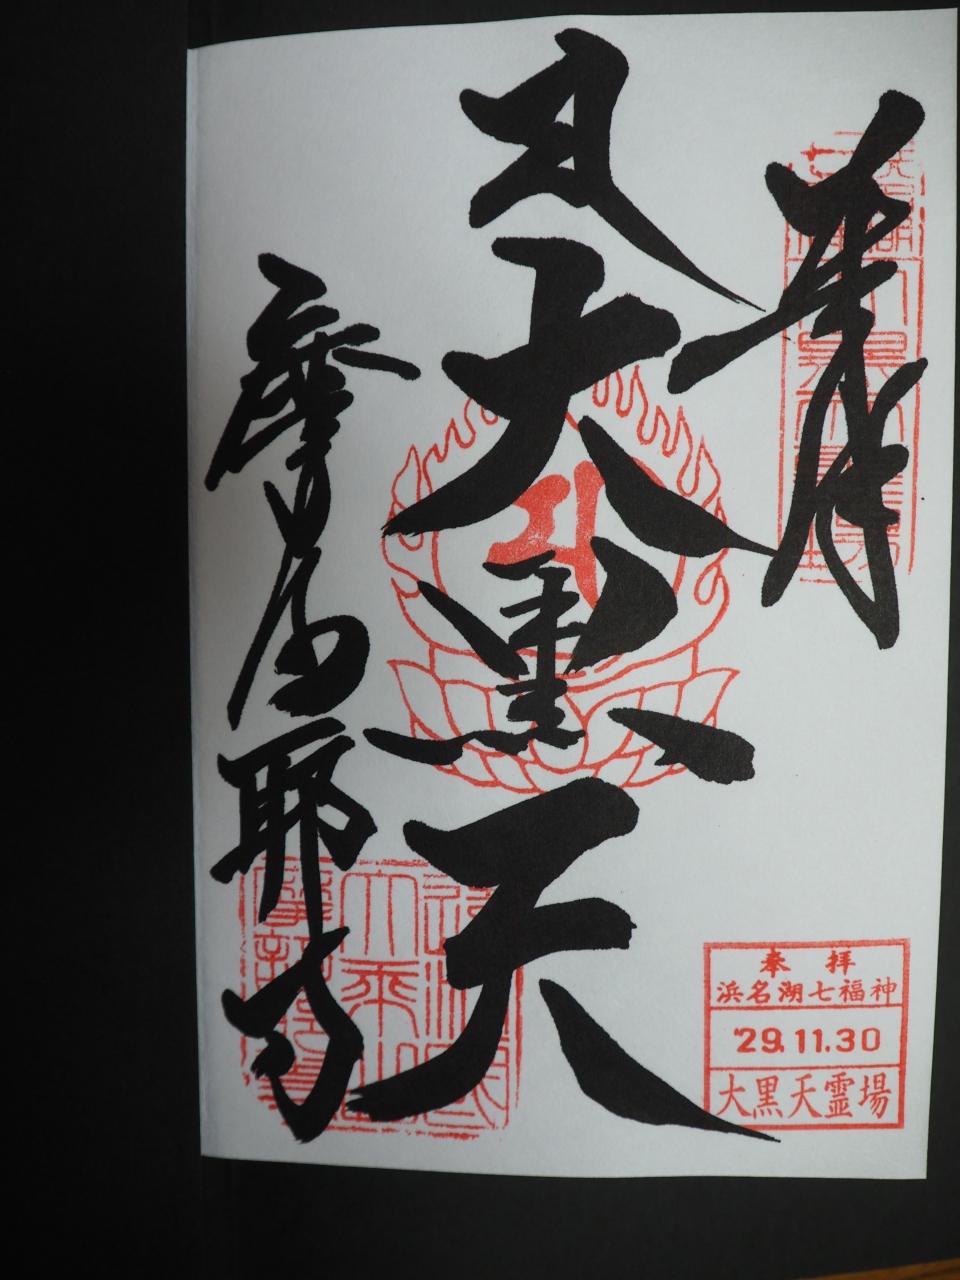 奉拝
大黒天
摩訶耶寺
奉拝
浜名湖七福神
'29.11.30
大黒天霊場